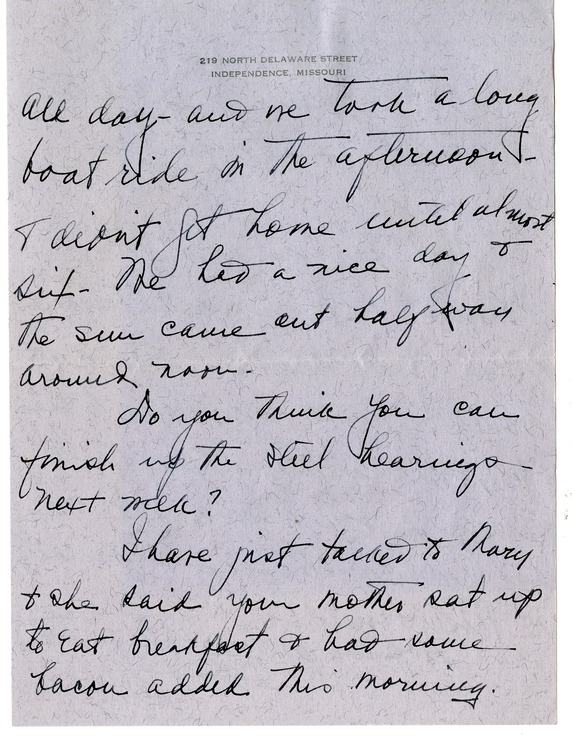 219 NORTH DELAWARE STREET
INDEPENDENCE, MISSOURI
all day- and we took a long
boat ride in the afternoon -
& didn't get home until almost
six - We had a nice day &
the sun came out half way
around noon -
Do you think you can
finish up the steel hearings
next week?
I have just talked to Mary
& she said your mother sat up
to eat breakfast & had some
bacon added this morning.